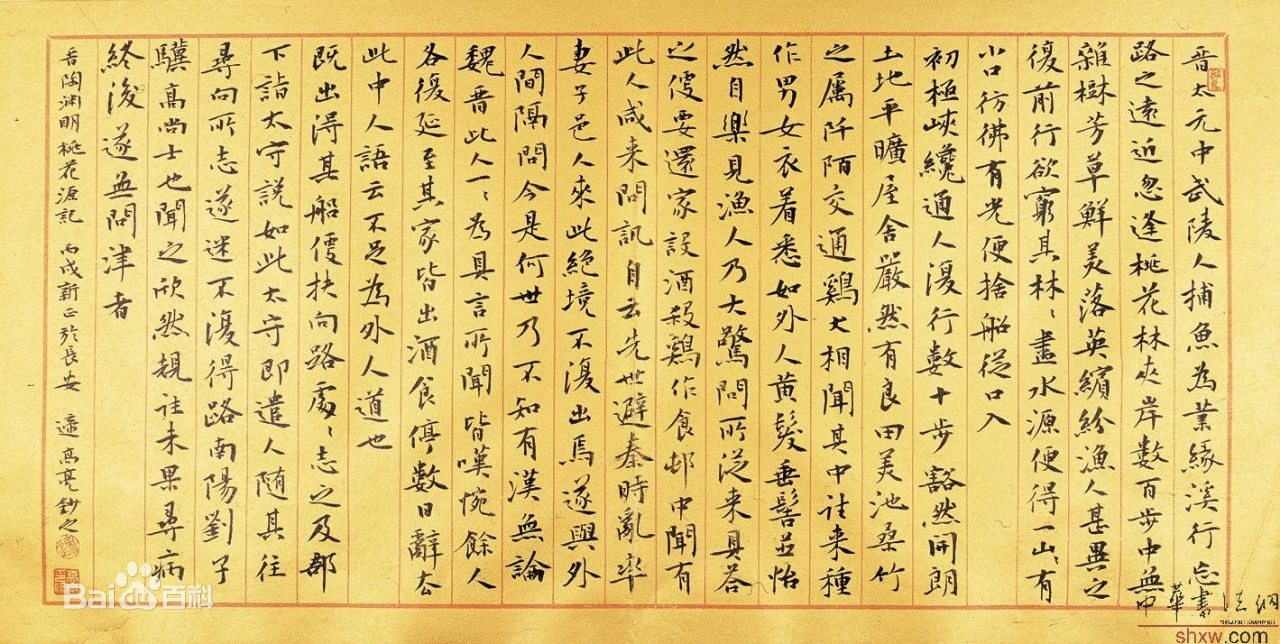 晋太元中武陵人捕魚為業緣溪行忘
路之遠近忽逢桃花林夾岸數百步中無
雜樹芳草鮮美落英繽紛漁人甚異之
復前行欲窮其林〻盡水源便得一山〻有
小口彷彿有光便捨船從口入
初極峽纔通人復行數十步豁然開朗
土地平曠屋舍嚴然有良田美池桑竹
之属阡陌交通鷄犬相聞其中往来種
作男女衣着悉如外人黄髮垂髫並怡
然自樂見漁人乃大驚問所從来具答
之便要還家設酒殺鷄作食邨中聞有
此人咸来問訊自云先世避秦時亂率
妻子邑人來此絕境不復出焉遂與外
人間隔問今是何世乃不知有漢無論
魏晋此人一〻為具言所聞皆嘆惋餘人
各復延至其家皆出酒食停數日辭去
此中人語云不足為外人道也
既出得其船便扶向路處〻志之及郡
下詣太守説如此太守即遣人随其往
尋向所志遂迷不復得路南陽劉子
驥高尚士也聞之欣然規往未果尋病
終後遂無問津者
晋陶渊明桃花源記 丙戌新正於長安 遠高亮鈔之
Bai百科
中華書法網
shxw.com